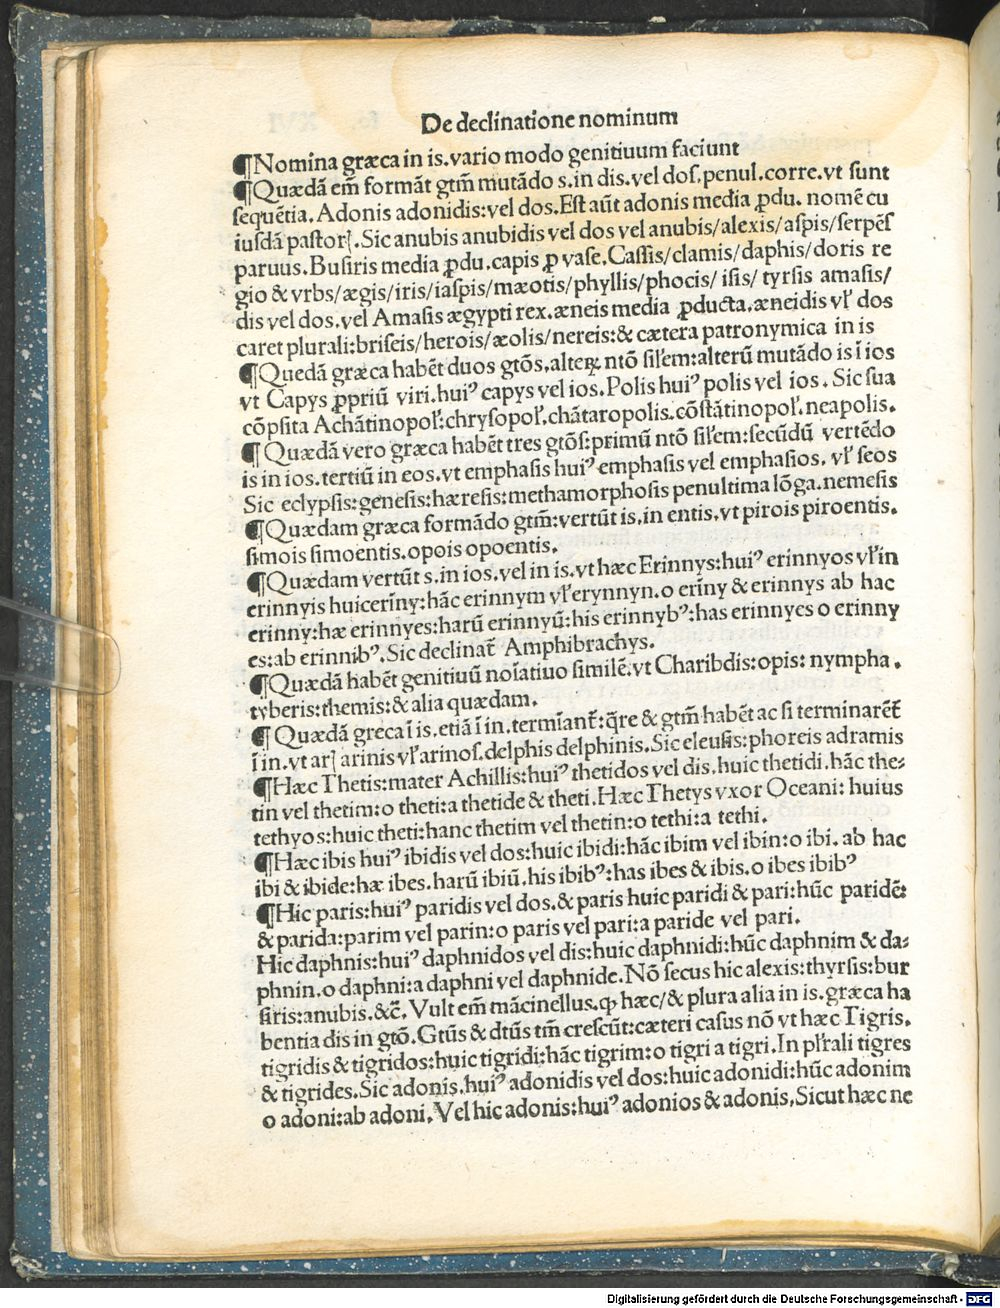 De declinatione nominum
¶Nomina græca in is.vario modo genitiuum faciunt
¶Quædā em̄ formāt gtm̄ mutādo s.in dis.vel dos.penul.corre.vt sunt
sequētia.Adonis adonidis:vel dos.Est aūt adonis media ꝓdu. nomē cu
iusdā pastorꝭ.Sic anubis anubidis vel dos vel anubis/alexis/aspis/serpēs
paruus.Busiris media ꝓdu.capis ꝓ vase.Cassis/clamis/daphis/doris re
gio & vrbs/ægis/iris/iaspis/mæotis/phyllis/phocis/ isis/ tyrsis amasis/
dis vel dos.vel Amasis ægypti rex.æneis media ꝓducta.æneidis vl' dos
caret plurali:briseis/herois/æolis/nereis:& cætera patronymica in is
¶Quedā græca habēt duos gtōs.alteꝝ ntō sil'em:alterū mutādo is ī ios
vt Capys ꝓpriū viri.huiꝰ capys vel ios.Polis huiꝰ polis vel ios. Sic sua
cōpsita Achātinopol':chrysopol'.chātaropolis.cōstātinopol'.neapolis.
¶Quædā vero græca habēt tres gtōs:primū ntō sil'em:secūdū vertēdo
is in ios.tertiū in eos.vt emphasis huiꝰ emphasis vel emphasios. vl' seos
Sic eclypsis:genesis:hæresis:methamorphosis penultima lōga.nemesis
¶Quædam græca formādo gtm̄:vertūt is.in entis.vt pirois piroentis.
simois simoentis.opois opoentis.
¶Quædam vertūt s.in ios.vel in is.vt hæc Erinnys:huiꝰ erinnyos vl' in
erinnyis huic eriñy:hāc erinnym vl' erynnyn.o eriñy & erinnys ab hac
erinny:hæ erinnyes:harū erinnyū:his erinnybꝰ:has erinnyes o erinny
es:ab erinnibꝰ.Sic declinat̄ Amphibrachys.
¶Quædā habēt genitiuū noīatiuo similē.vt Charibdis:opis: nympha.
tyberis:themis:& alia quædam.
¶Quædā greca ī is.etiā ī in.termīant̄:q̄re & gtm̄ habēt ac si terminarēt̄
ī in.vt arꝭ arinis vl' arinos.delphis delphinis.Sic eleusis:phoreis adramis
¶Hæc Thetis:mater Achillis:huiꝰ thetidos vel dis.huic thetidi.hāc the⸗
tin vel thetim:o theti:a thetide & theti.Hæc Thetys vxor Oceani: huius
tethyos:huic theti:hanc thetim vel thetin:o tethi:a tethi.
¶Hæc ibis huiꝰ ibidis vel dos:huic ibidi:hāc ibim vel ibin:o ibi. ab hac
ibi & ibide:hæ ibes.harū ibiū.his ibibꝰ:has ibes & ibis.o ibes ibibꝰ
¶Hic paris:huiꝰ paridis vel dos.& paris huic paridi & pari:hūc paridē:
& parida:parim vel parin:o paris vel pari:a paride vel pari.
Hic daphnis:huiꝰ daphnidos vel dis:huic daphnidi:hūc daphnim & da⸗
phnin.o daphni:a daphni vel daphnide.Nō secus hic alexis:thyrsis:bur
siris:anubis.&c̄.Vult em̄ mācinellus.ꝙ hæc/& plura alia in is.græca ha
bentia dis in gtō.Gtūs & dtūs tm̄ crescūt:cæteri casus nō vt hæc Tigris.
tigridis & tigridos:huic tigridi:hāc tigrim:o tigri a tigri.In pl'rali tigres
& tigrides.Sic adonis.huiꝰ adonidis vel dos:huic adonidi:hūc adonim
o adoni:ab adoni.Vel hic adonis:huiꝰ adonios & adonis.Sicut hæc ne
Digitalisierung gefördert durch die Deutsche Forschungsgemeinschaft - DFG